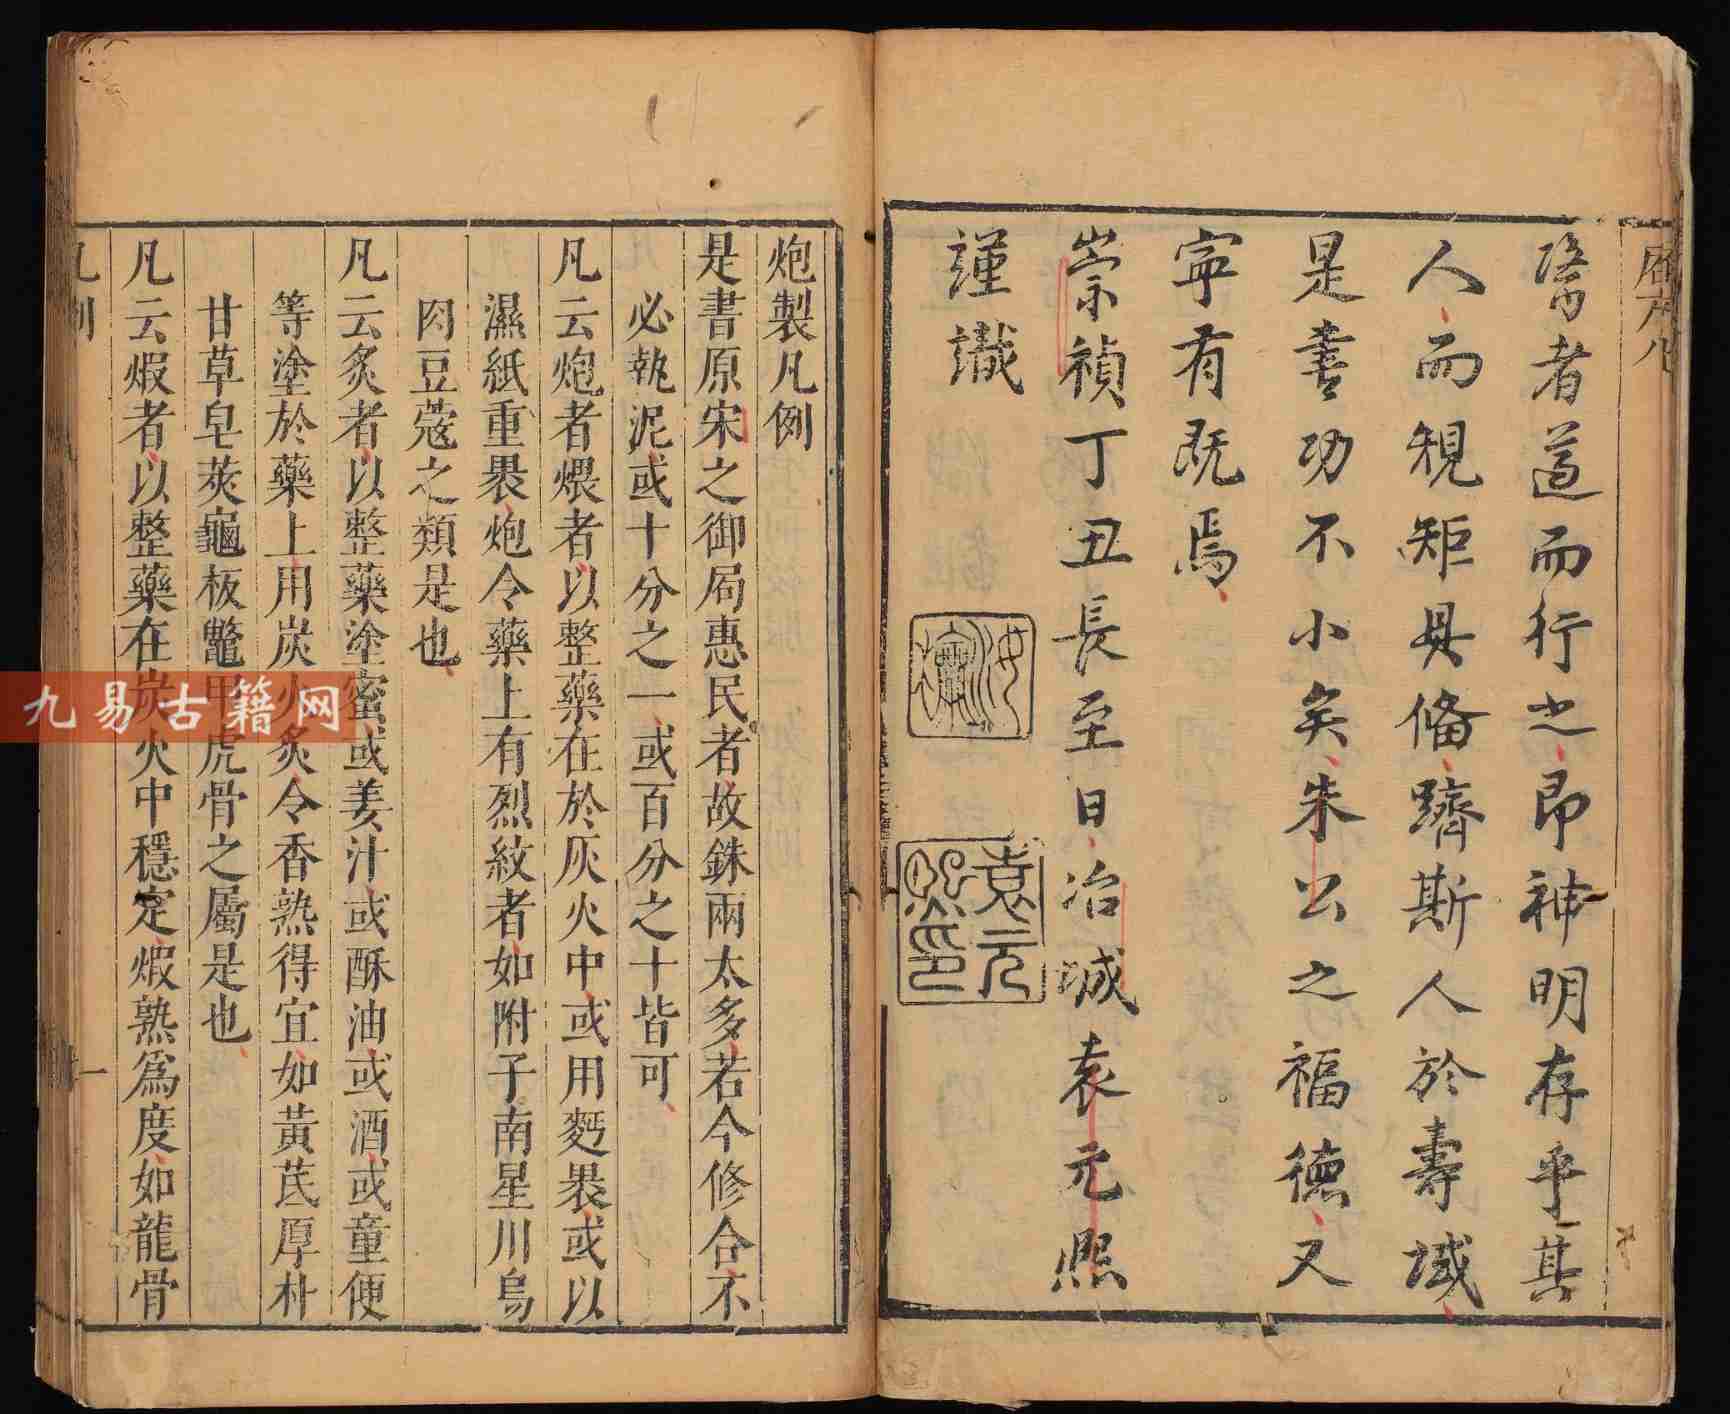 醫者遵而行之即神明存乎其
人而規矩具備躋斯人於壽域
是書功不小矣朱公之福德又
寜有既焉
崇禎丁丑長至日冶城袁元熙
謹識
袁元熙印
炮製凡例
是書原宋之御局惠民者故銖兩太多若今修合不
必執泥或十分之一或百分之十皆可
凡云炮者煨者以整藥在於灰火中或用麪褁或以
濕紙重褁炮令藥上有烈紋者如附子南星川烏
肉豆蔻之類是也
凡云炙者以整藥塗蜜或姜汁或酥油或酒或童便
等塗於藥上用炭火炙令香熟得宜如黃芪厚朴
甘草皂莢龜板鼈甲虎骨之屬是也
凡云煆者以整藥在炭火中穩定煆熟爲度如龍骨
凡例
一
九易古籍网